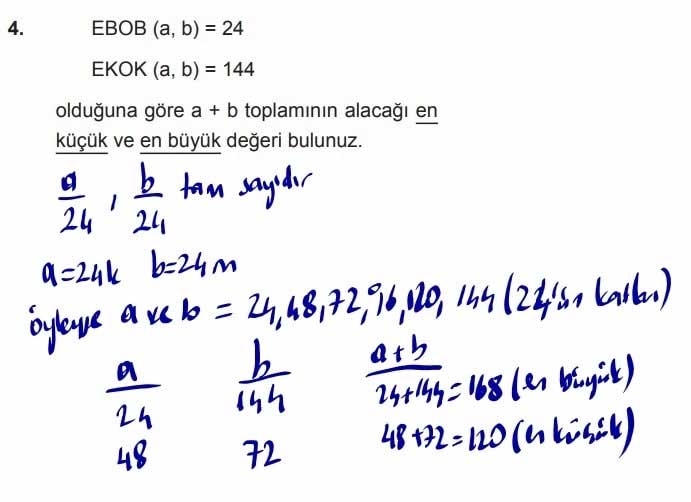 4. EBOB (a, b) = 24
EKOK (a, b) = 144
olduğuna göre a + b toplamının alacağı en
küçük ve en büyük değeri bulunuz.
a/24 , b/24 tam sayıdır
a=24k b=24m
öyleyse a ve b = 24,48,72,96,120, 144 (24'ün katları)
a b a+b
24 144 24+144=168 (en büyük)
48 72 48+72=120 (en küçük)